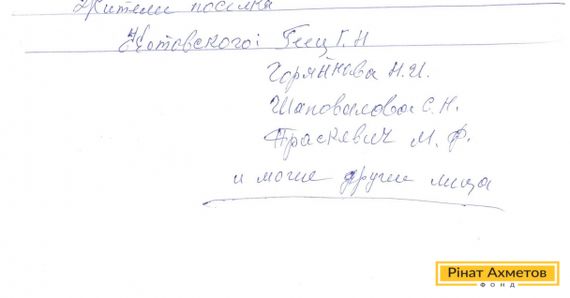 Жители поселка
Котовского: Геец Г. Н
Горяйнова Н. И.
Шаповалова С. Н.
Праскевич М. Ф.
и могие другие лица
Рінат Ахметов
ФОНД